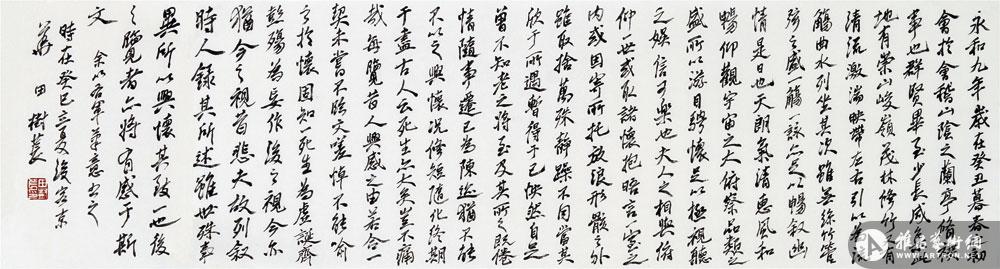 永和九年歲在癸丑暮春之初
會於會稽山陰之蘭亭脩禊
事也群賢畢至少長咸集此
地有崇山峻嶺茂林修竹又有
清流激湍映帶左右引以為流
觴曲水列坐其次雖無絲竹管
弦之盛一觴一詠亦足以暢敘幽
情是日也天朗氣清惠風和
暢仰觀宇宙之大俯察品類之
盛所以遊目騁懷足以極視聽
之娛信可樂也夫人之相與俯
仰一世或取諸懷抱晤言一室之
內或因寄所托放浪形骸之外
雖取捨萬殊靜躁不同當其
欣于所遇暫得于己快然自足
曾不知老之將至及其所之既倦
情隨事遷已為陳迹猶不能
不以之興懷況修短隨化終期
于盡古人云死生亦大矣豈不痛
哉每覽昔人興感之由若合一
契未嘗不臨文嗟悼不能喻
之於懷固知一死生為虛誕齊
彭殤為妄作後之視今亦
猶今之視昔悲夫故列敘
時人錄其所述雖世殊事
異所以興懷其致一也後
之覽者亦將有感于斯
文 余以右軍筆意書之
時在癸巳之夏 客京
華 田樹萇
雅昌藝術網
WWW.ARTRON.NET